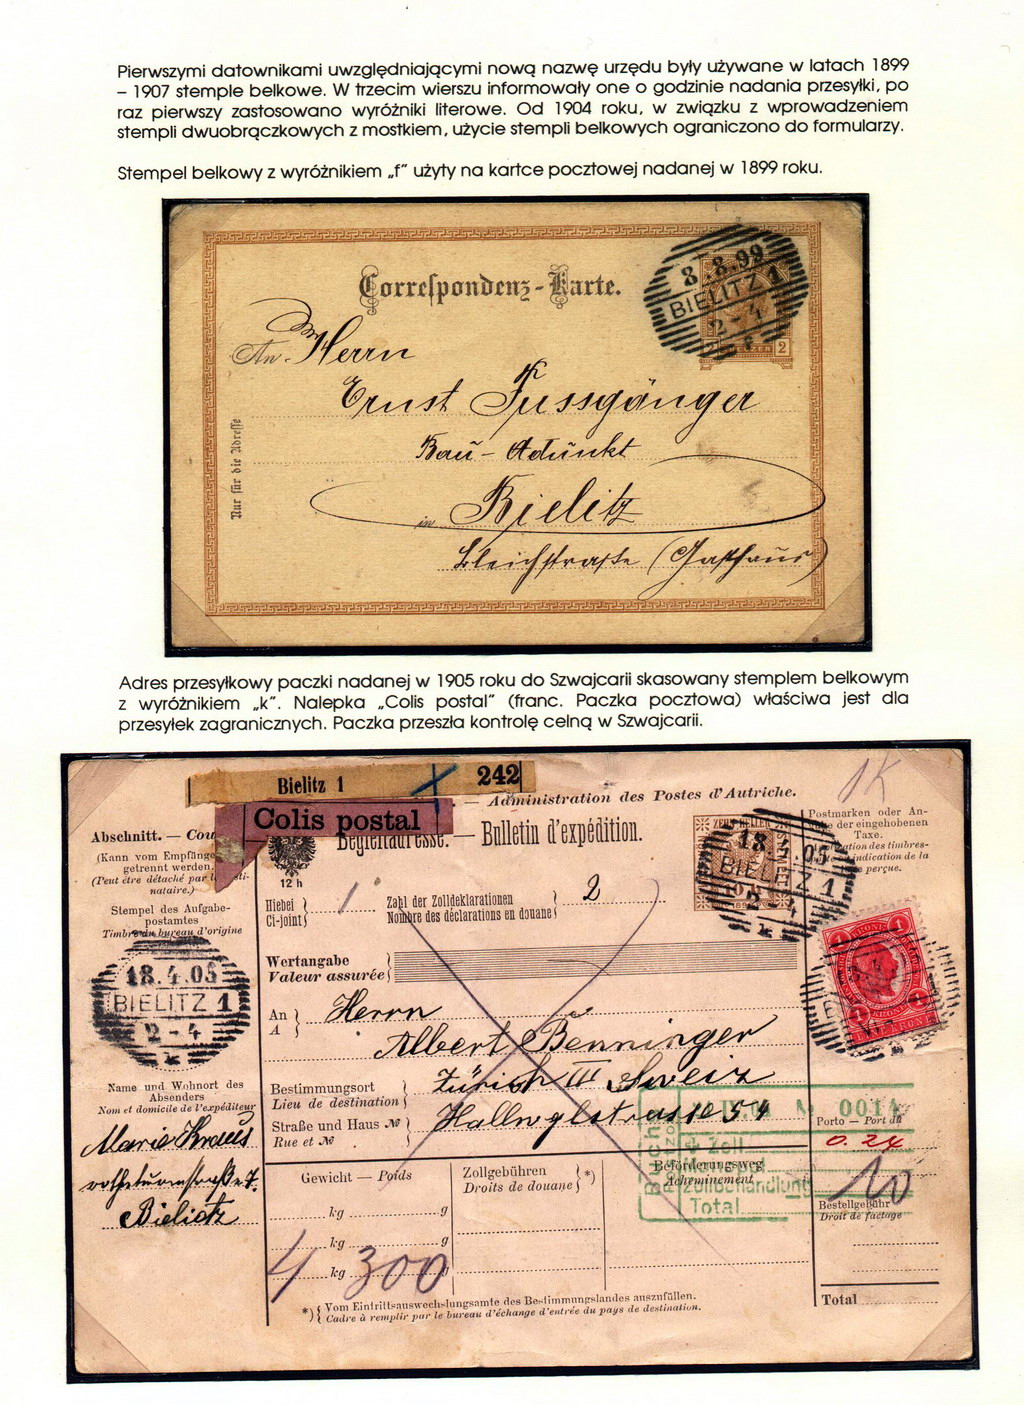 Pierwszymi datownikami uwzględniającymi nową nazwę urzędu były używane w latach 1899
– 1907 stemple belkowe. W trzecim wierszu informowały one o godzinie nadania przesyłki, po
raz pierwszy zastosowano wyróżniki literowe. Od 1904 roku, w związku z wprowadzeniem
stempli dwuobrączkowych z mostkiem, użycie stempli belkowych ograniczono do formularzy.
Stempel belkowy z wyróżnikiem „f” użyty na kartce pocztowej nadanej w 1899 roku.
8.8.99
BIELITZ 1
2-4
f
2
Correspondenz-Karte.
An Herrn
Ernst Fussgänger
Bau-Adunkt
in Bielitz
Bleichstraße (Gasthaus)
Nur für die Adresse
Adres przesyłkowy paczki nadanej w 1905 roku do Szwajcarii skasowany stemplem belkowym
z wyróżnikiem „k”. Nalepka „Colis postal” (franc. Paczka pocztowa) właściwa jest dla
przesyłek zagranicznych. Paczka przeszła kontrolę celną w Szwajcarii.
Bielitz 1 242
Colis postal
— Administration des Postes d'Autriche.
Begleitadresse. — Bulletin d'expédition.
1K
Abschnitt. — Cou
(Kann vom Empfänge
getrennt werden.
(Peut être détaché par
nataire.)
Stempel des Aufgabe-
postamtes
Timbre du bureau d'origine
18.4.05
BIELITZ 1
2-4
k
Name und Wohnort des
Absenders
Nom et domicile de l'expéditeur
Marie Kraus
7.
Bielitz
12 h
Hiebei
Ci-joint
1
Zahl der Zolldeklarationen
Nombre des déclarations en douane
2
Wertangabe
Valeur assurée
An
A
Herrn
Albert Benninger
Bestimmungsort
Lieu de destination
Zürich III Sweiz
Straße und Haus №
Rue et №
Hallwylstrasse 54
Gewicht — Poids
kg g
kg g
kg g
4 300
Zollgebühren
Droits de douane *)
Beförderungsweg
Acheminement
*) Vom Eintrittsauswechslungsamte des Bestimmungslandes auszufüllen.
Cadre à remplir par le bureau d'échange d'entrée du pays de destination.
ZEHN HELLER
18. .05
BIELITZ 1
2-4
k
Postmarken oder An-
gabe der eingehobenen
Taxe.
des timbres-
indication de la
perçue.
1 KRONE 1
№ 0014
Zoll
Zollbehandlung
Total
Porto — Port du
0.24
10
Bestellgebühr
Droit de factage
Total